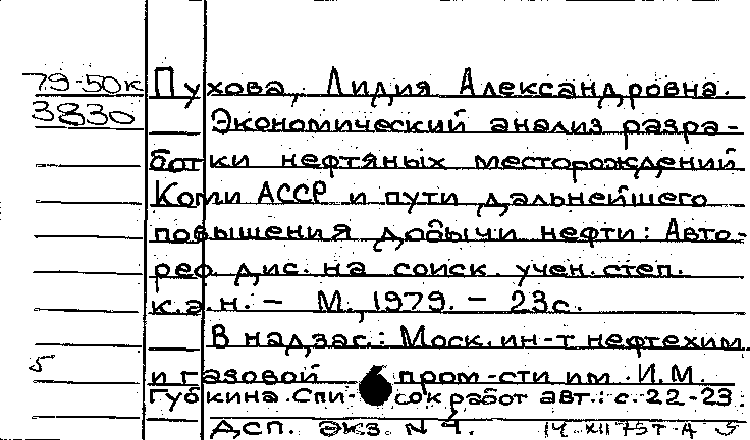 79-50к Пухова, Лидия Александровна.
3830 Экономический анализ разра-
ботки нефтяных месторождений
Коми АССР и пути дальнейшего
повышения добычи нефти: Авто-
реф. дис. на соиск. учен. степ.
к.э.н. - М., 1979. - 23с.
В надзаг.: Моск. ин-т нефтехим.
5 и газовой пром-сти им. И.М.
Губкина. Спи- сок работ авт.: с. 22-23.
Дсп. экз. N 4.